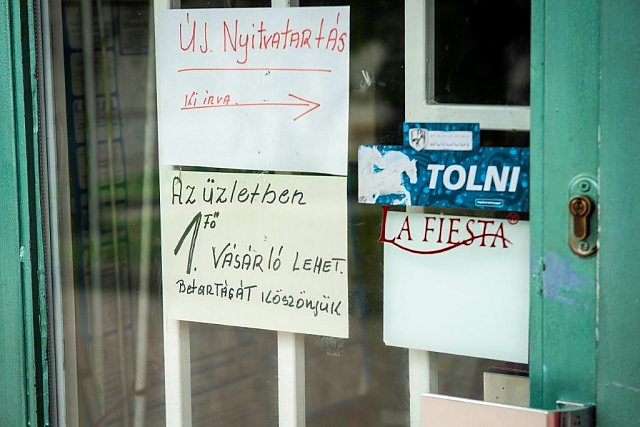 ÚJ. NyitvatartÁS
Ki írva.
Az üzletben
1. Fő
VÁSÁRLÓ LEHET.
BetartÁSÁT KÖSZÖNJÜK
TOLNI
LA FIESTA®